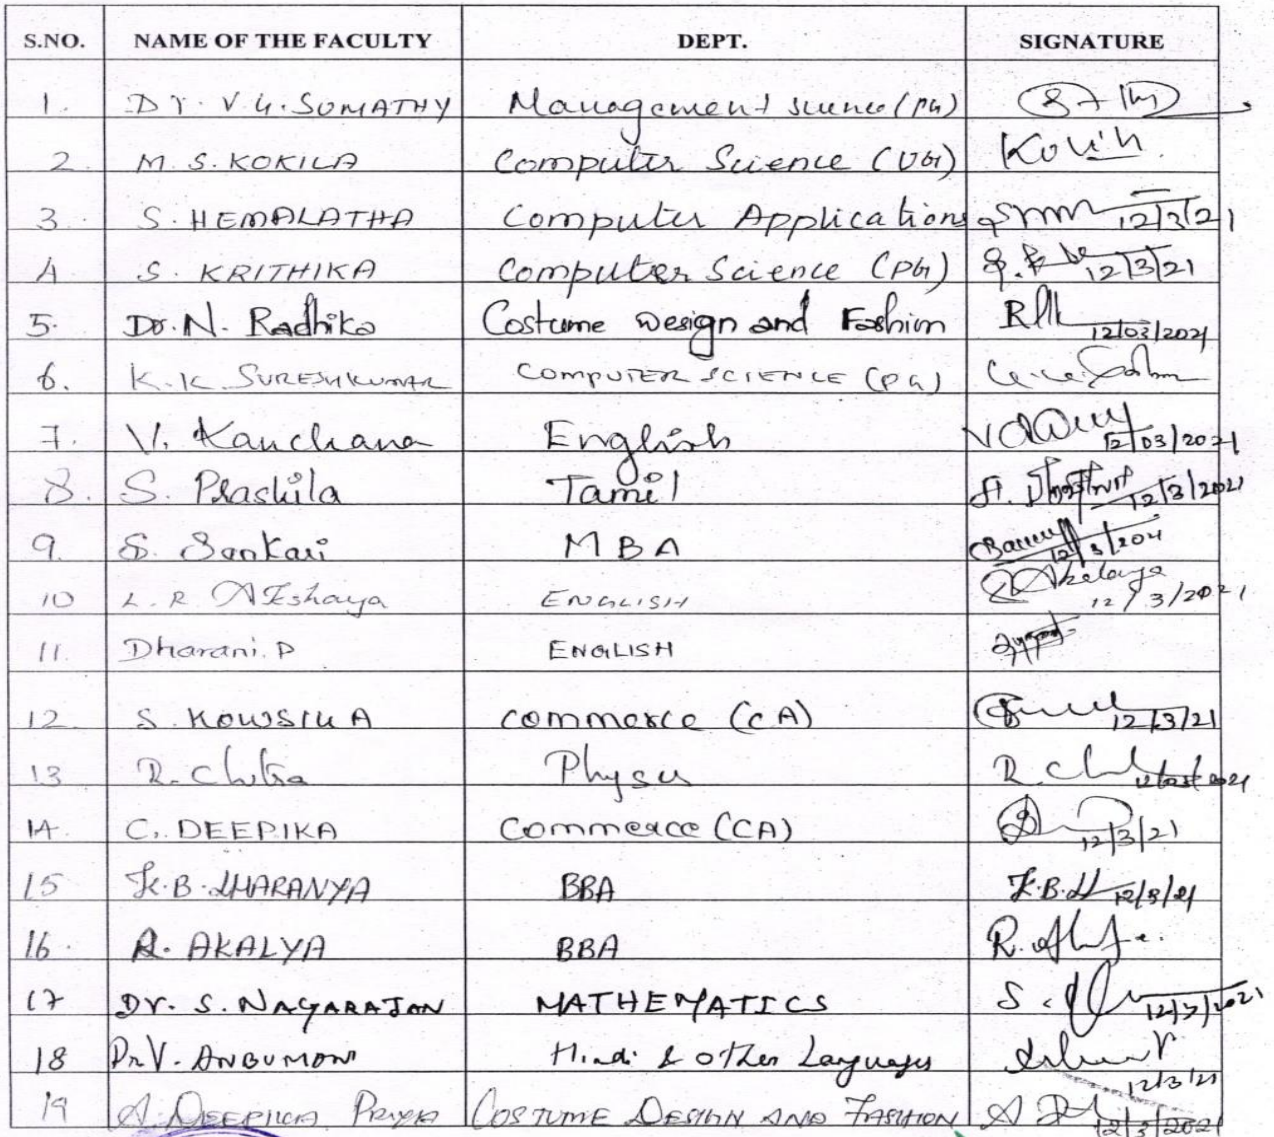 S.NO. NAME OF THE FACULTY DEPT. SIGNATURE
1. Dr. V.G. SUMATHY Management science (PG)
2 M. S. KOKILA Computer Science (UG)
3. S. HEMALATHA Computer Applications 12/3/21
4 S. KRITHIKA Computer Science (PG) 12/3/21
5. Dr. N. Radhika Costume Design and Fashion 12/03/2021
6. K.K SURESHKUMAR COMPUTER SCIENCE (PG)
7. V. Kanchana English 12/03/2021
8. S. Prashila Tamil 12/3/2021
9. S. Sankari MBA 12/3/2021
10 L. R Akshaya ENGLISH 12/3/2021
11. Dharani. P ENGLISH
12 S. KOWSIKA Commerce (CA) 12/3/21
13 R. Chitra Physics R. 12/03/2021
14. C. DEEPIKA Commerce (CA) 12/3/21
15 K.B. DHARANYA BBA K.B. 12/3/21
16. R. AKALYA BBA R.
17 Dr. S. NAGARAJAN MATHEMATICS S. 12/3/2021
18 Dr V. ANBUMANI Hindi & other Languages 12/3/21
19 A. DEEPIKA PRIYA COSTUME DESIGN AND FASHION A 12/3/2021